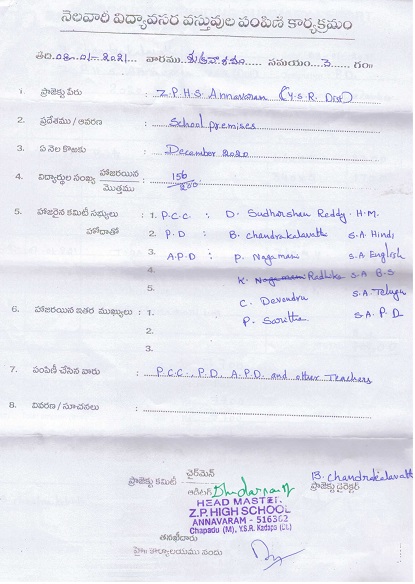 నెలవారీ విద్యావసర వస్తువుల పంపిణీ కార్యక్రమం
తేది.08-01-2021... వారము..శుక్రవారము.... సమయం..3..... గం॥
1. ప్రాజెక్టు పేరు : Z.P.H.S Annavaram (Y.S.R Dist)
2. ప్రదేశము / ఆవరణ : School premises
3. ఏ నెల కొఱకు : December 2020
4. విద్యార్థుల సంఖ్య హాజరయిన : 156
మొత్తము 200
5. హాజరైన కమిటీ సభ్యులు : 1. P.C.C : D. Sudharshan Reddy. H.M.
హోదాతో 2. P.D : B. chandrakalavathi S.A Hindi
3. A.P.D : P. Nagamani S.A English
4. K. Radhika S.A B.S
5. C. Devendru S.A. Telugu
6. హాజరయిన ఇతర ముఖ్యులు : 1. P. Saritha S.A P.D
2.
3.
7. పంపిణీ చేసిన వారు : P.C.C., P.D, A.P.D. and other Teachers
8. వివరణ / సూచనలు :
ప్రాజెక్టు కమిటీ చైర్మెన్
ఆడిటర్
B. chandrakalavathi
ప్రాజెక్టు డైరెక్టర్
HEAD MASTER
Z.P. HIGH SCHOOL
ANNAVARAM - 516362
Chapadu (M), Y.S.R. Kadapa (Dt.)
తనఖీదారు
కార్యాలయము నందు